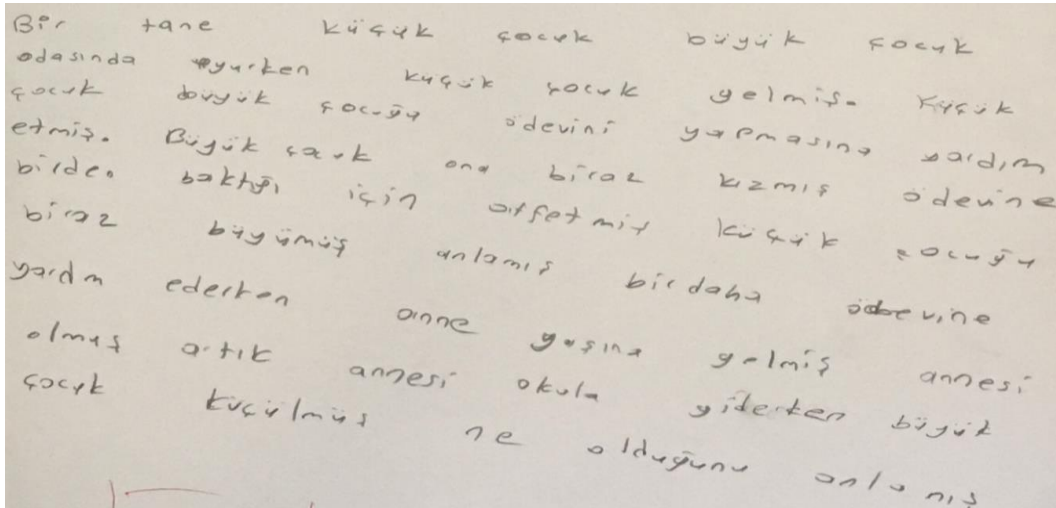 Bir tane küçük çocuk büyük çocuk
odasında uyurken küçük çocuk gelmiş. Küçük
çocuk büyük çocuğu ödevini yapmasına yardım
etmiş. Büyük çocuk ona biraz kızmış ödevine
birden baktığı için affetmiş küçük çocuğu
biraz büyümüş anlamış birdaha ödevine
yardm ederken anne yaşına gelmiş annesi
olmuş artık annesi okula giderken büyük
çocuk küçülmüş ne olduğunu anlamış